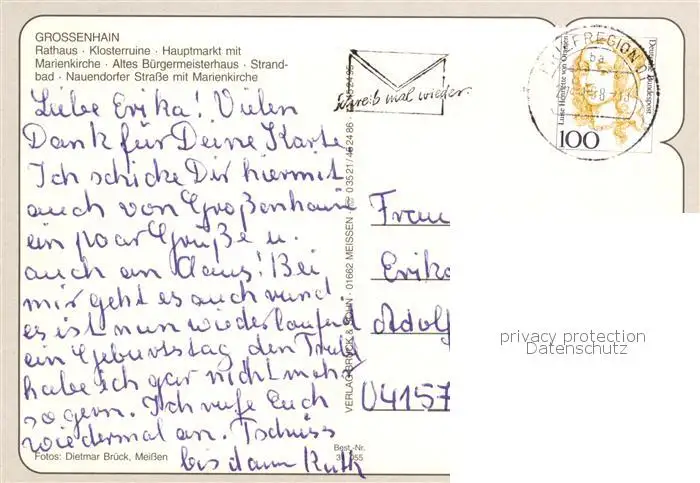 GROSSENHAIN
Rathaus · Klosterruine · Hauptmarkt mit
Marienkirche · Altes Bürgermeisterhaus · Strand-
bad · Nauendorfer Straße mit Marienkirche
Liebe Erika! Vielen
Dank für Deine Karte
Ich schicke Dir hiermit
auch von Großenhain
ein paar Grüße u.
auch an Claus! Bei
mir geht es auch rund
es ist nun wieder laufend
ein Geburtstag den
habe ich gar nicht mehr
so gern. Ich rufe Euch
wiedermal an. Tschüss
bis dann Ruth
Fotos: Dietmar Brück, Meißen
Best.-Nr.
VERLAG BRÜCK & SOHN · 01662 MEISSEN
schreib mal wieder
BRIEFREGION
ba
Luise Henriette von Oranien
Deutsche Bundespost
100
Frau
Erika
Adolf
04157
privacy protection
Datenschutz